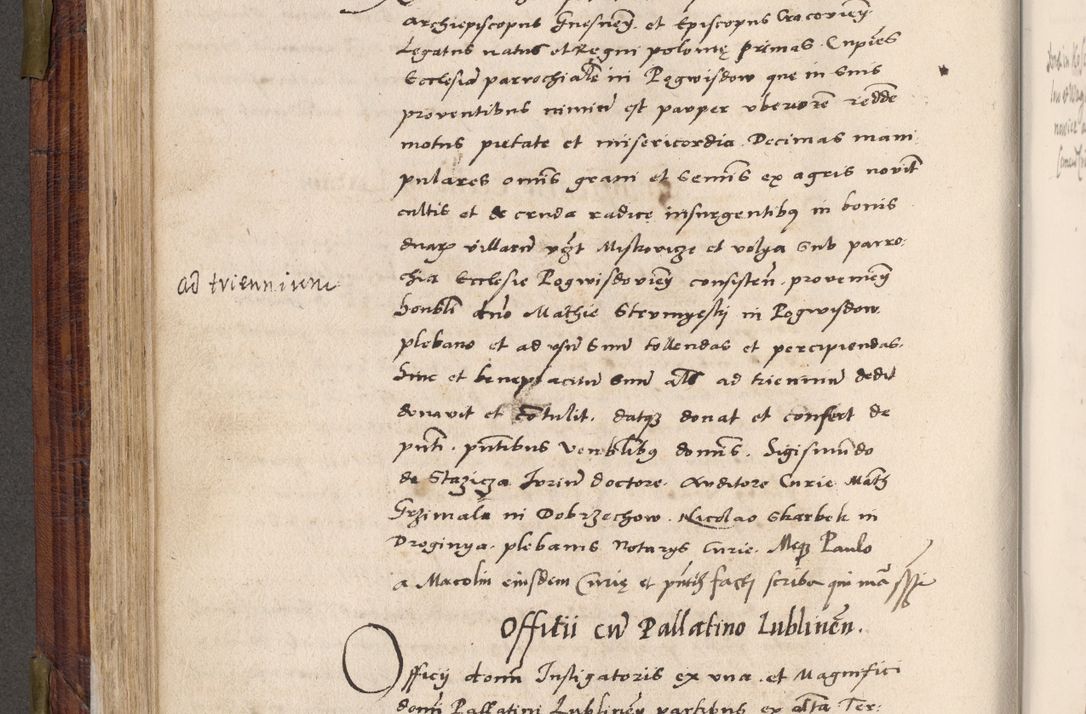 archiepiscopus Gnesnen̄. et Episcopus Cracovien̄
Legatus natus et Regni polonię primas. Cupiēs
Ecclesiā parrochialē in Pogwisdow que in suis
proventibus nimiū est pauper uberiorē reddē
motus pietate et misericordia. Decimas mani
pulares omīs grani et seminis ex agris novit
cultis et de cruda radice insurgentibꝫ in bonis
duarꝝ villarū vꝫt Miskovicze et volya sub parro:
chia Ecclesie Pogwisdovien̄ consisten̄. provenien̄
honbli dno Mathie Strmyeskj in Pogwysdow
plebano et ad usū suū tollendas et percipiendas.
hinc et beneplacitū suū als ad trienniū dedit
ad triennium
donavit et cōtulit. datqꝫ donat et confert de
pn̄ti. pn̄tibus Venblibꝫ domīs. Sigismūdo
de Stazicza Juriū doctore. Auditore Curie Math
Grzimala in Dobrzechow. Nicolao Skarbek in
Droginya. plebanis Notarys Curie. Meqꝫ Paulo
a Macolin eiusdem Curię et pn̄tis facti scriba
Officii cū Pallatino Lublinen̄.
Officij domī Instigatoris ex una. et Magnifici
domī Pallatini Lublinen̄ partibus ex alta Ter: